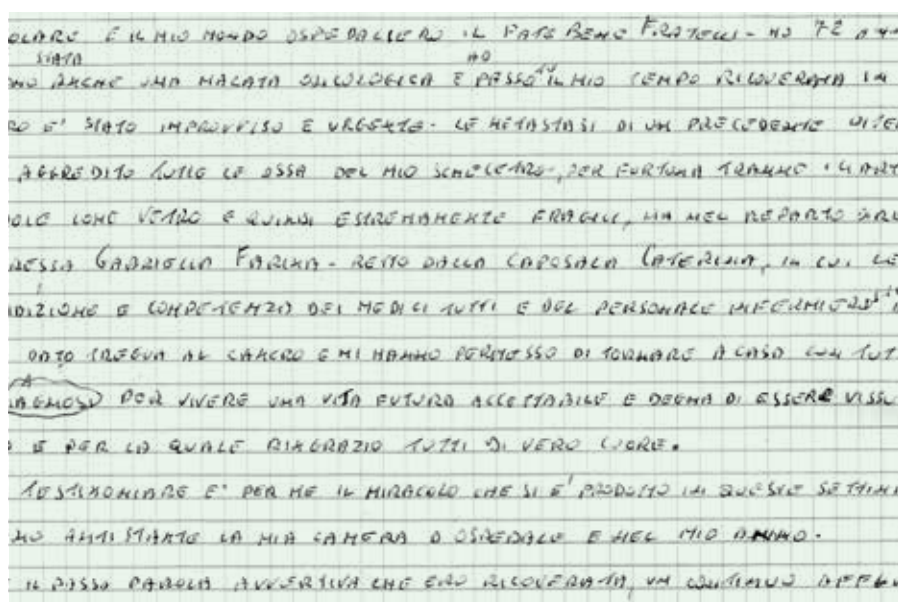 OLARE E IL MIO MONDO OSPEDALIERO IL FATE BENE FRATELLI - HO 72 ANN
STATA HO
NO ANCHE UNA MALATA ONCOLOGICA E PASSO IL MIO TEMPO RICOVERATA IN
RO E' STATO IMPROVVISO E URGENTE - LE METASTASI DI UN PRECEDENTE
AGGREDITO TUTTE LE OSSA DEL MIO SCHELETRO, PER FORTUNA TRANNE ART
OLE COME VETRO E QUINDI ESTREMAMENTE FRAGILI, MA NEL REPARTO
RESSA GABRIELLA FARINA - RETTO DALLA CAPOSALA CATERINA, IN CUI LE
DIZIONE E COMPETENZA DEI MEDICI TUTTI E DEL PERSONALE INFERMIERO
DATO TREGUA AL CANCRO E MI HANNO PERMESSO DI TORNARE A CASA CON TUT
PER VIVERE UNA VITA FUTURA ACCETTABILE E DEGNA DI ESSERE VISSU
E PER LA QUALE RINGRAZIO TUTTI DI VERO CUORE.
TESTIMONIARE E' PER ME IL MIRACOLO CHE SI E' PRODOTTO IN QUESTE SETTIM
NO ANTISTANTE LA MIA CAMERA D OSPEDALE E NEL MIO ANIMO.
IL PASSO PAROLA AVVERTIVA CHE ERO RICOVERATA, UN CONTINUO